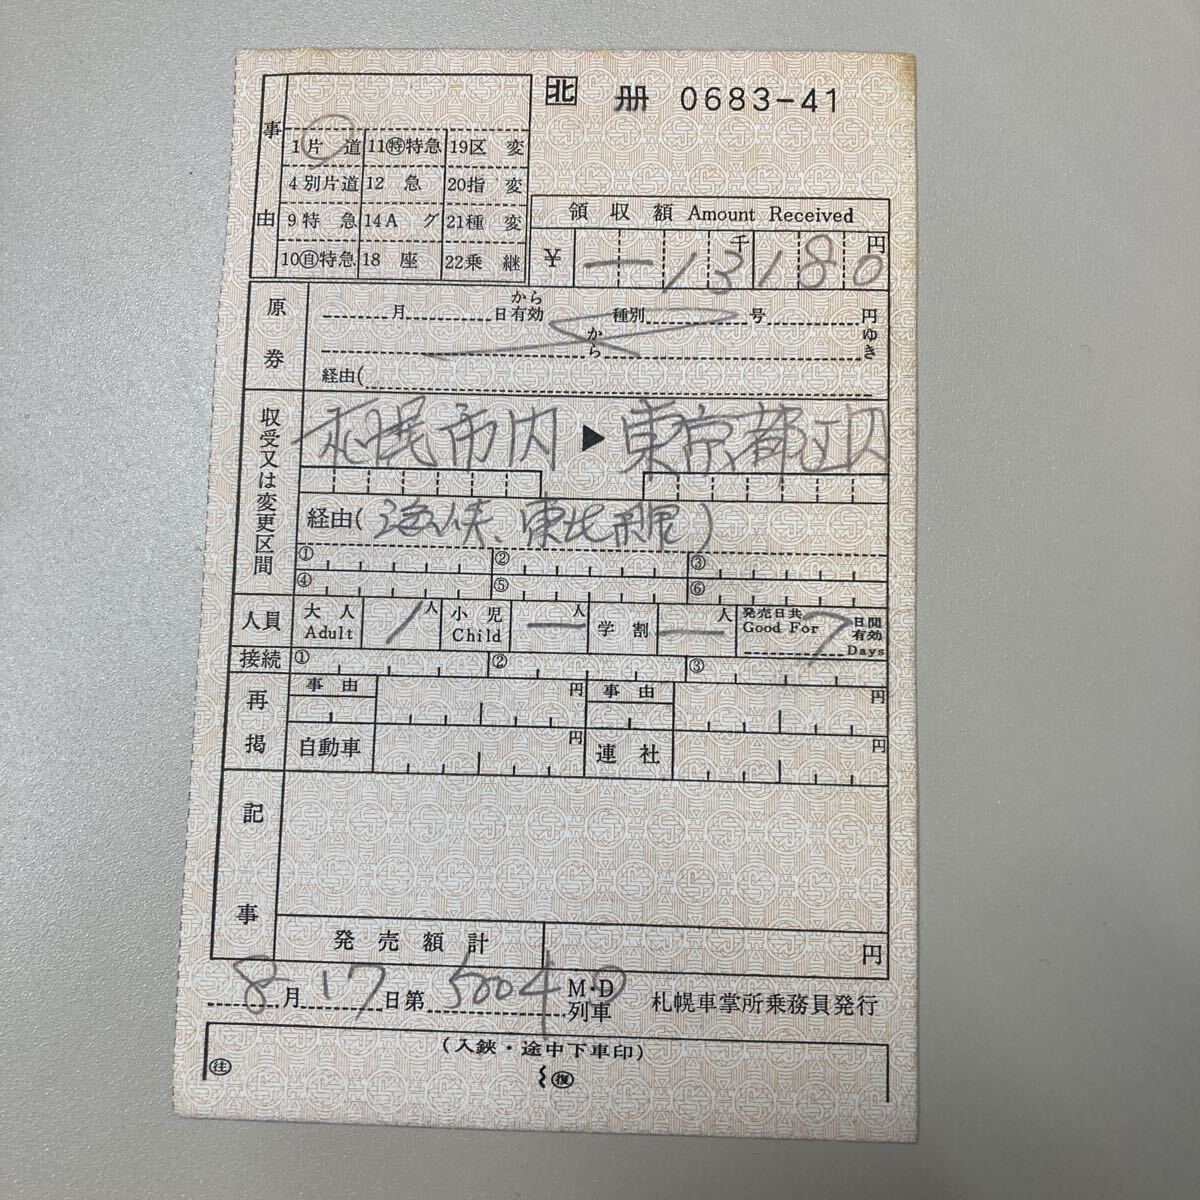 北 冊 0683-41
事由
1片道 11特特急 19区変
4別片道 12急 20指変
9特急 14Aグ 21種変
10自特急 18座 22乗継
領収額 Amount Received
¥ 一13180 千 円
原券
月 から 日有効 種別 号 円
から ゆき
経由(
収受又は変更区間
札幌市内 ▶ 東京都区内
経由(海峡、東北
① ② ③
④ ⑤ ⑥
人員 大人 Adult 1人 小児 Child 一人 学割 一人 発売日共 Good For 7 日間有効 Days
接続 ① ② ③
再掲 事由 円 事由 円
自動車 円 連社 円
記事
発売額計 円
8月17日第5004 M・D列車 札幌車掌所乗務員発行
(入鋏・途中下車印)
往 復